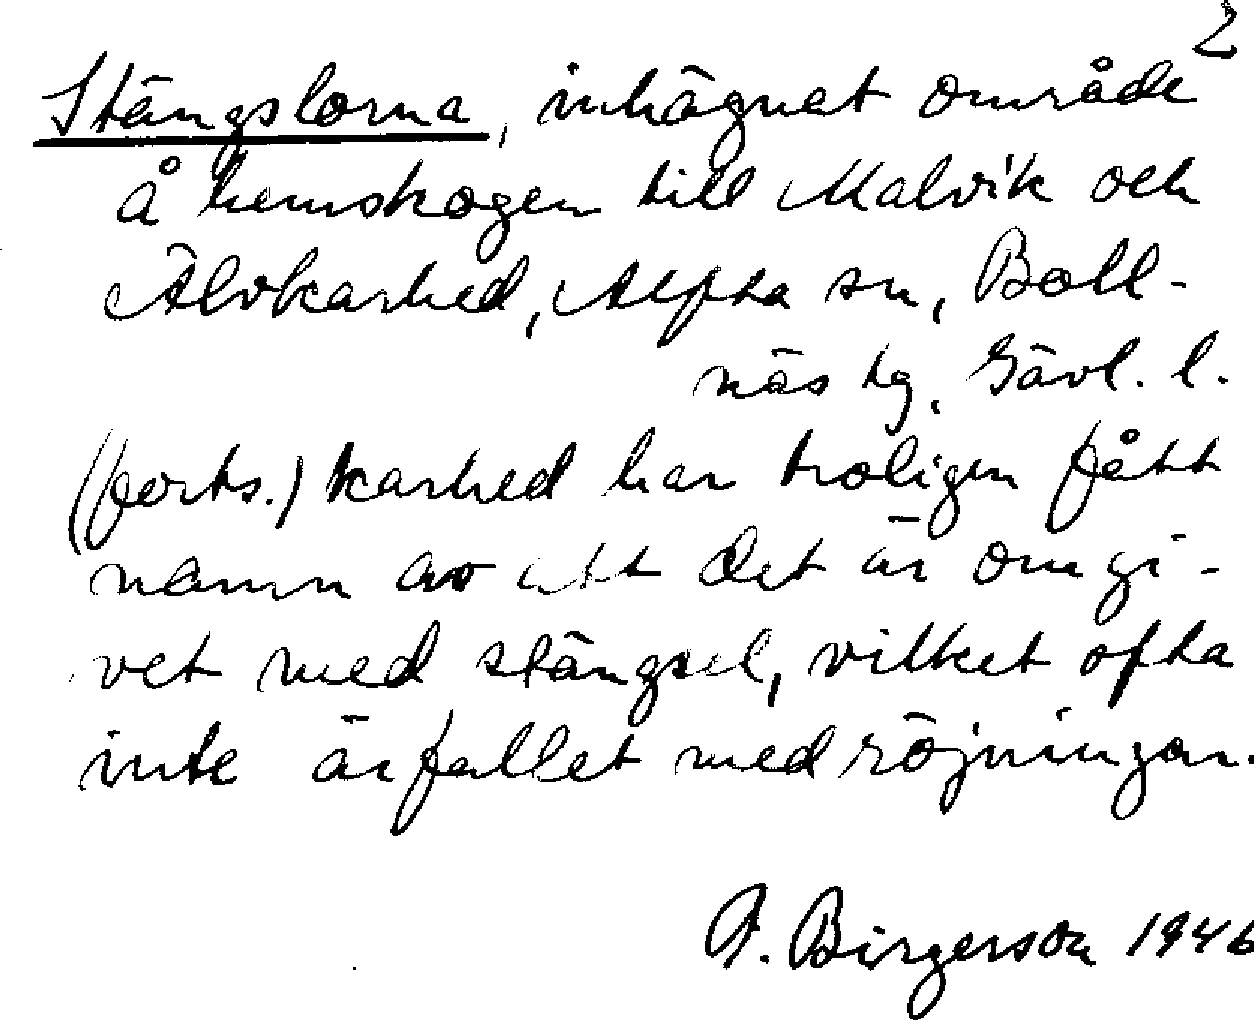 2
Stängslorna, inhägnat område
å hemskogen till Malvik och
Älvkarhed, Alfta sn, Boll-
näs tg, Gävl. l.
(forts.) karhed har troligen fått
namn av att det är omgi-
vet med stängsel, vilket ofta
inte är fallet med röjningar.
A. Birgerson 1946